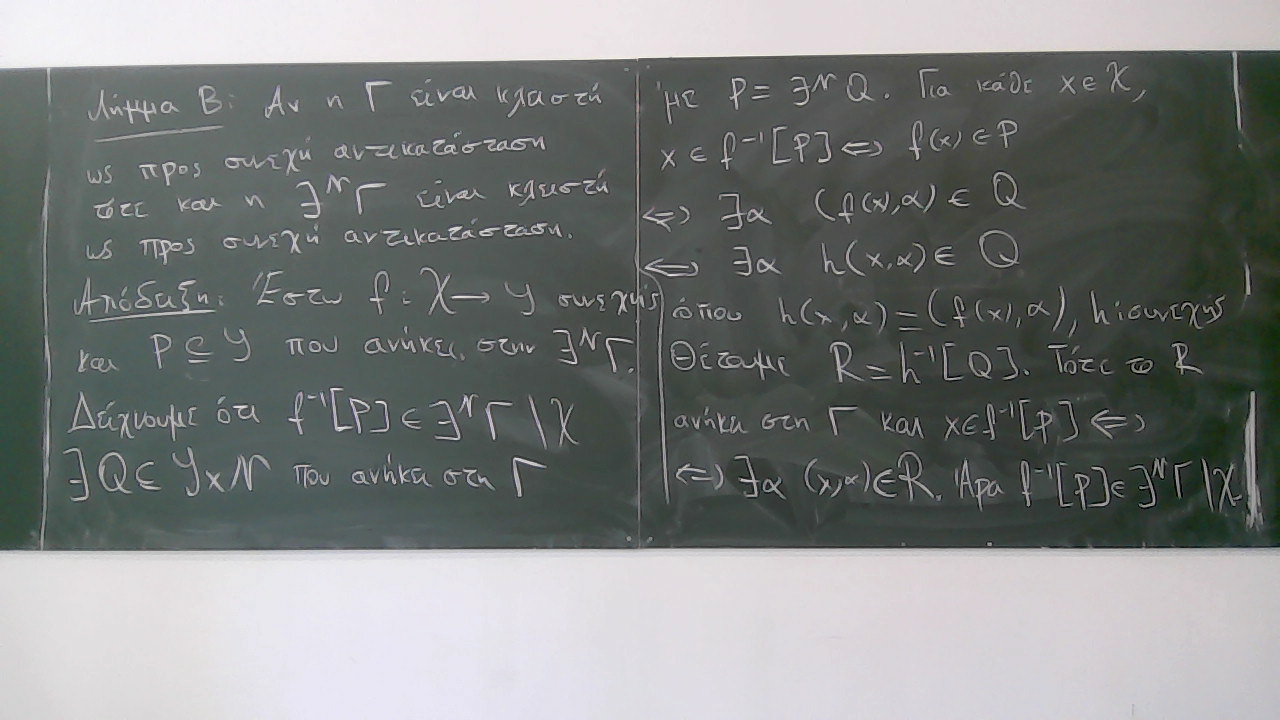 Λήμμα Β: Αν η Γ είναι κλειστή
ως προς συνεχή αντικατάσταση
τότε και η ∃^𝒩 Γ είναι κλειστή
ως προς συνεχή αντικατάσταση.
Απόδειξη: Έστω f : 𝒳 → 𝒴 συνεχής
και P ⊆ 𝒴 που ανήκει στην ∃^𝒩 Γ.
Δείχνουμε ότι f⁻¹[P] ∈ ∃^𝒩 Γ|𝒳
∃ Q ⊆ 𝒴×𝒩 που ανήκει στη Γ
με P = ∃^𝒩 Q. Για κάθε x ∈ 𝒳,
x ∈ f⁻¹[P] ⇔ f(x) ∈ P
⇔ ∃α (f(x), α) ∈ Q
⇔ ∃α h(x, α) ∈ Q
όπου h(x, α) = (f(x), α), h: συνεχής
Θέτουμε R = h⁻¹[Q]. Τότε το R
ανήκει στη Γ και x ∈ f⁻¹[P] ⇔
⇔ ∃α (x, α) ∈ R. Άρα f⁻¹[P] ∈ ∃^𝒩 Γ|𝒳